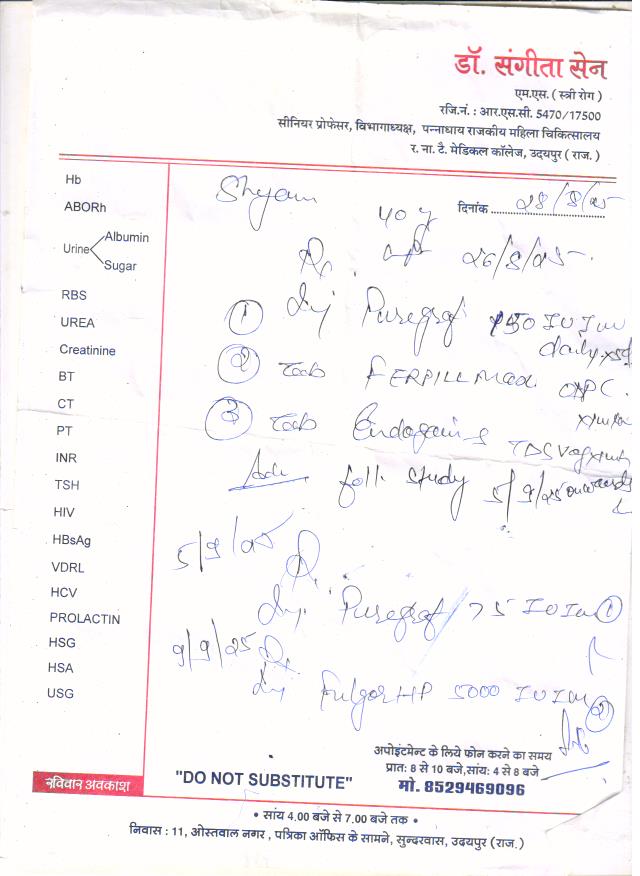 डॉ. संगीता सेन
एम.एस. ( स्त्री रोग )
रजि.नं. : आर.एस.सी. 5470/17500
सीनियर प्रोफेसर, विभागाध्यक्ष, पन्नाधाय राजकीय महिला चिकित्सालय
र. ना. टै. मेडिकल कॉलेज, उदयपुर ( राज. )
Shyam
दिनांक
40 y
Hb
ABORh
Urine
Albumin
Sugar
RBS
UREA
Creatinine
BT
CT
PT
INR
TSH
HIV
HBsAg
VDRL
HCV
PROLACTIN
HSG
HSA
USG
Rx
① Inj Puregraf 150 IU Im
daily
② Tab
③ Tab
Adv foll. study 5/9/25 onwards
5/9/25 Rx
Inj. Puregraf 75 IU Im ①
9/9/25 Rx
Inj Fulgor HP 5000 IU Im ②
रविवार अवकाश
"DO NOT SUBSTITUTE"
अपोइंटमेन्ट के लिये फोन करने का समय
प्रात: 8 से 10 बजे,सांय: 4 से 8 बजे
मो. 8529469096
• सांय 4.00 बजे से 7.00 बजे तक •
निवास : 11, ओस्तवाल नगर , पत्रिका ऑफिस के सामने, सुन्दरवास, उदयपुर (राज.)